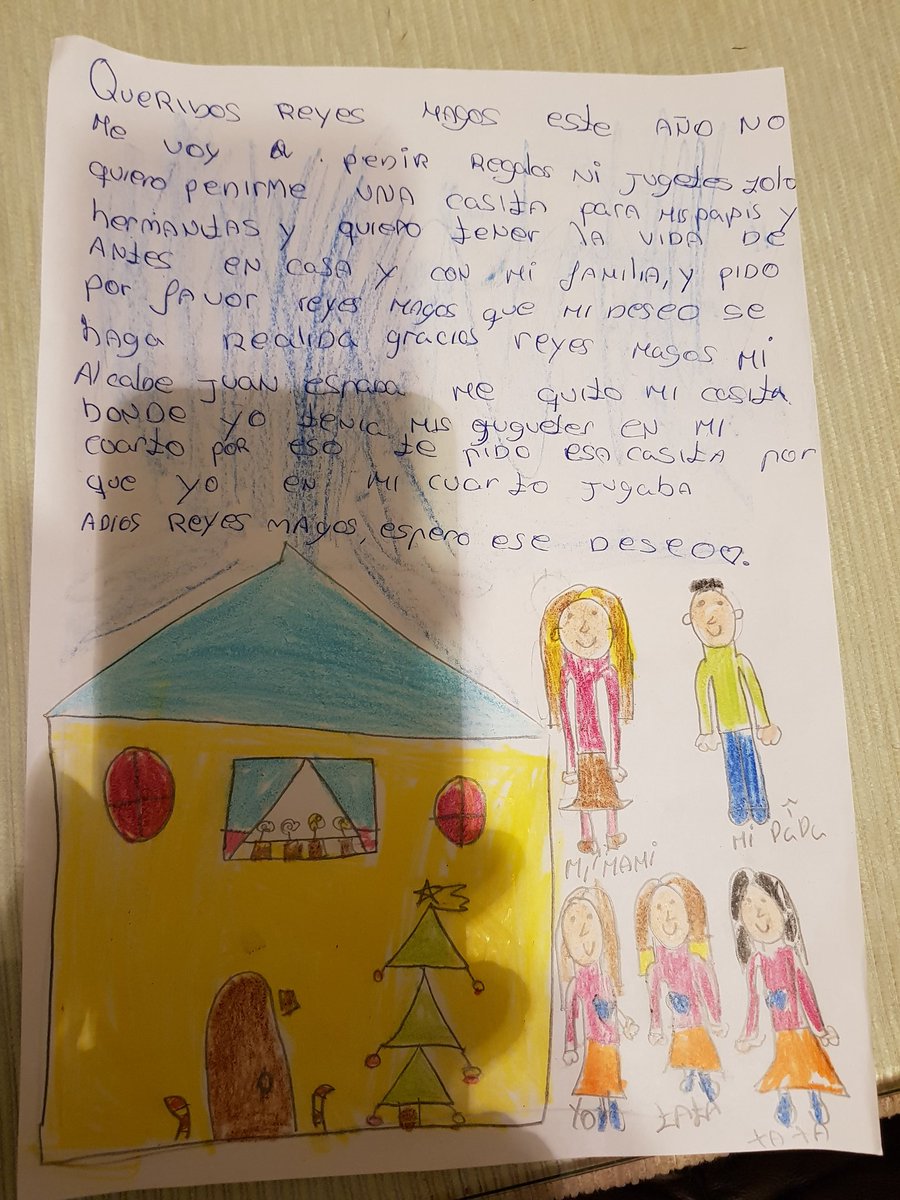 QUERIDOS REYES MAGOS ESTE AÑO NO
ME VOY A PENIR REGALOS NI JUGETES ZOLO
QUIERO PENIRME UNA CASITA PARA MIS PAPIS Y
HERMANITAS Y QUIERO TENER LA VIDA DE
ANTES EN CASA Y CON MI FAMILIA, Y PIDO
POR FAVOR REYES MAGOS QUE MI DESEO SE
HAGA REALIDA GRACIAS REYES MAGOS MI
ALCALDE JUAN ESPADA ME QUITO MI CASITA
DONDE YO TENIA MIS JUGUETES EN MI
CUARTO POR ESO TE PIDO ESA CASITA POR
QUE YO EN MI CUARTO JUGABA
ADIOS REYES MAGOS, ESPERO ESE DESEO♡.
MI MAMI
MI PAPA
YO
TATA
TATA